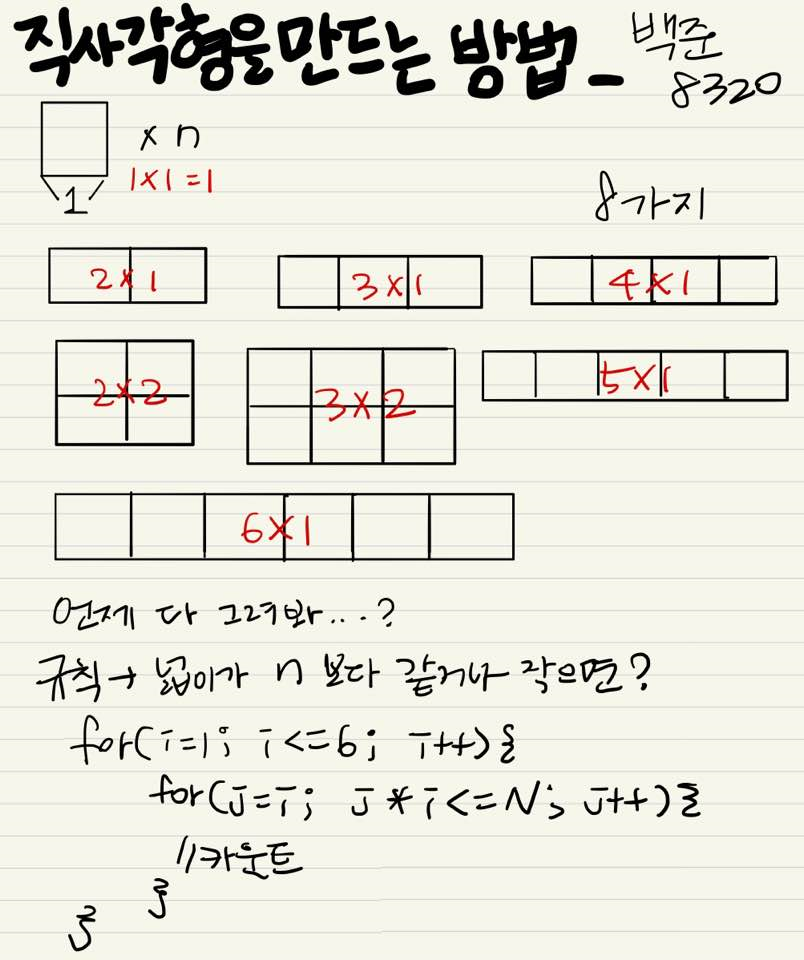 직사각형을만드는 방법_
백준
8320
x n
1x1=1
1
8가지
2x1
3x1
4x1
2x2
3x2
5x1
6x1
언제 다 그려봐...?
규칙→ 넓이가 n 보다 같거나 작으면?
for(i=1; i<=6; i++){
for(j=i; j*i<=N; j++){
//카운트
}
}